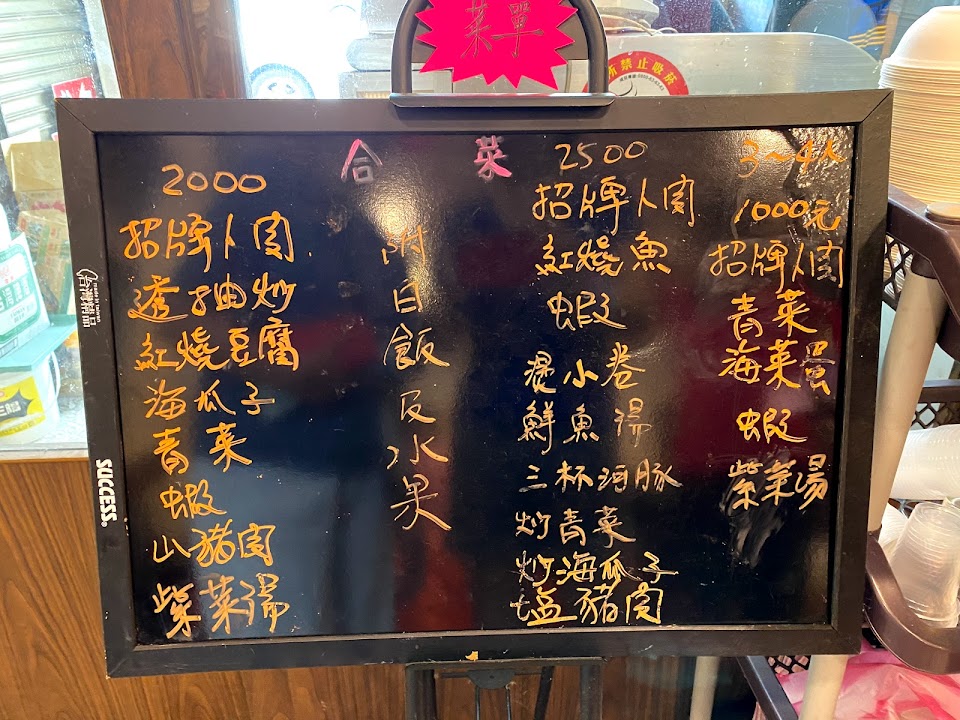 菜單
所禁止吸菸
合菜
2000
招牌卜肉
透抽炒
紅燒豆腐
海瓜子
青菜
蝦
山豬肉
紫菜湯
附白飯及水果
2500
招牌卜肉
紅燒魚
蝦
燙小卷
鮮魚湯
三杯河豚
炒青菜
炒海瓜子
塩豬肉
3~4人
1000元
招牌卜肉
青菜
海菜蛋
蝦
紫菜湯
台灣精品
SUCCESS